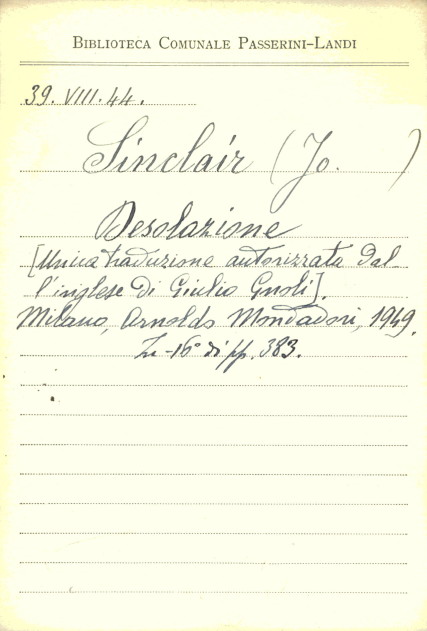 BIBLIOTECA COMUNALE PASSERINI-LANDI
39. VIII. 44.
Sinclair (Jo. )
Desolazione
[Unica traduzione autorizzata dal
l'inglese di Giulio Gnoli].
Milano, Arnoldo Mondadori, 1949.
In-16° di pp. 383.